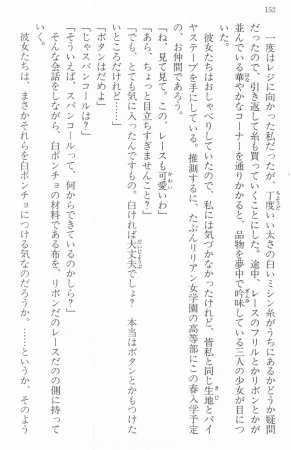 152
一度はレジに向かった私だったが、丁度いい太さの白いミシン糸がうちにあるかどうか疑問
だったので、引き返して糸も買っていくことにした。途中、レースのフリルとかリボンとかが
並んでいる華やかなコーナーを通りかかると、品物を夢中で吟味している三人の少女が目につ
いた。
彼女たちはおしゃべりしていたので、私には気づかなかったけれど、皆私と同じ生地とバイ
ヤステープを手にしている。推測するに、たぶんリリアン女学園の高等部にこの春入学予定
の、お仲間であろう。
「ね、見て見て。この、レースも可愛いわ」
「あら、ちょっと目立ちすぎませんこと?」
「でも、とても気に入ったんですもの。白ければ大丈夫でしょ? 本当はボタンとかもつけた
いところだけれど……」
「ボタンはだめよ」
「じゃスパンコールは?」
「そういえば、スパンコールって、何からできているのかしら?」
そんな会話をしながら、白ポンチョの材料である布を、リボンだのレースだのの側に持って
いく。
彼女たちは、まさかそれらを白ポンチョにつける気なのだろうか。……というか、そのよう